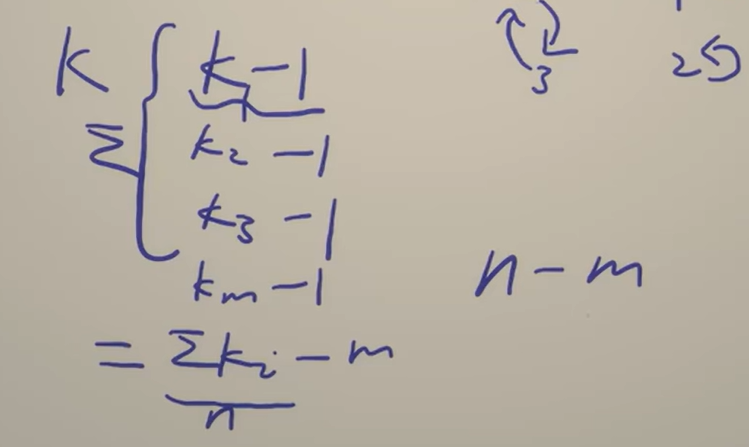 K
Σ
k₁ - 1
k₂ - 1
k₃ - 1
kₘ - 1
= Σkᵢ - m
n
3
2
n - m